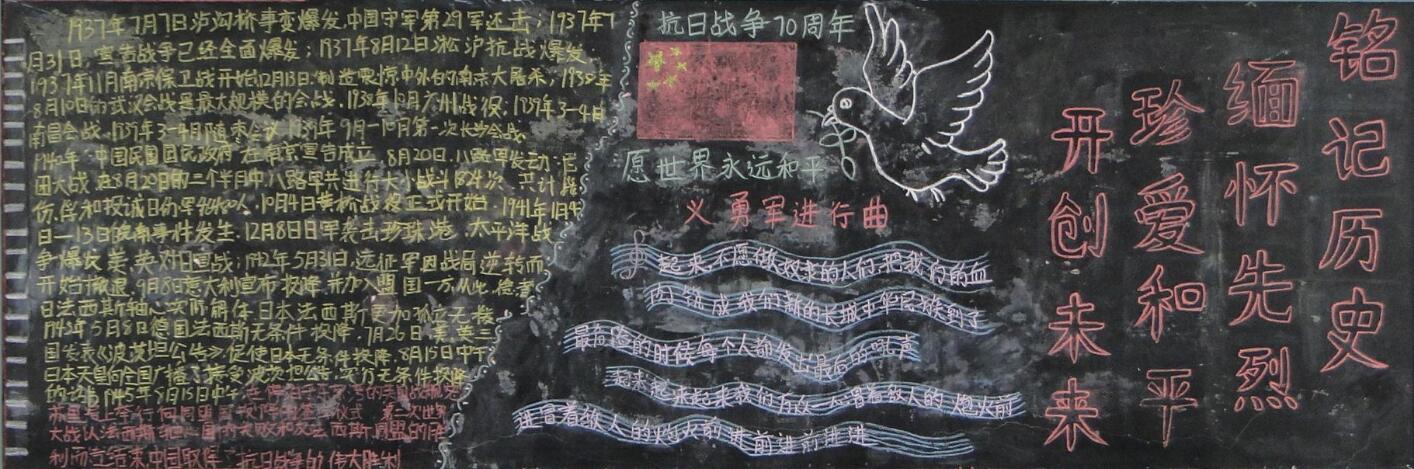 1937年7月7日泸沟桥事变爆发,中国守军第29军还击;1937年7
月31日,宣告战争已经全面爆发;1937年8月12日淞沪抗战爆发,
1937年11月南京保卫战开始12月13日,制造震惊中外的南京大屠杀,1938年
8月10日的武汉会战是最大规模的会战,1938年10月广州战役,1939年3-4月
南昌会战,1939年3-4月随枣会议,1939年9月-10月第一次长沙会战
1940年,中国民国国民政府在南京宣告成立,8月20日,八路军发动百
团大战,在8月20日的三个半月中八路军共进行大小战斗1824次,共计毙
伤,俘和投诚日伪军46480人,10月4日黄桥战役正式开始,1941年1月4
日-13日皖南事件发生,12月8日日军袭击珍珠港,太平洋战
争爆发美,英对日宣战;1942年5月31日,远征军因战局逆转而
开始撤退,9月8日意大利宣布投降,并加入盟国一方,从此,德意
日法西斯轴心实际解体,日本法西斯更加孤立无援
1945年5月8日德国法西斯无条件投降,7月26日美英三
国发表《波茨坦公告》,促使日本无条件投降,8月15日中午
日本天皇向全国广播了接受波茨坦公告,实行无条件投降
1945年8月15日中午
苏里号上举行向同盟国投降的签字仪式,第二次世界
大战以法西斯轴心国的失败和反法西斯同盟的胜
利而告结束,中国取得 抗日战争的伟大胜利
抗日战争70周年
愿世界永远和平
义勇军进行曲
起来不愿做奴隶的人们,把我们的血
肉筑成我们新的长城中华民族到了
最危险的时候每个人都发出最后的吼声
起来起来起来我们万众一心冒着敌人的炮火前
进冒着敌人的炮火前进前进前进进
铭记历史
缅怀先烈
珍爱和平
开创未来